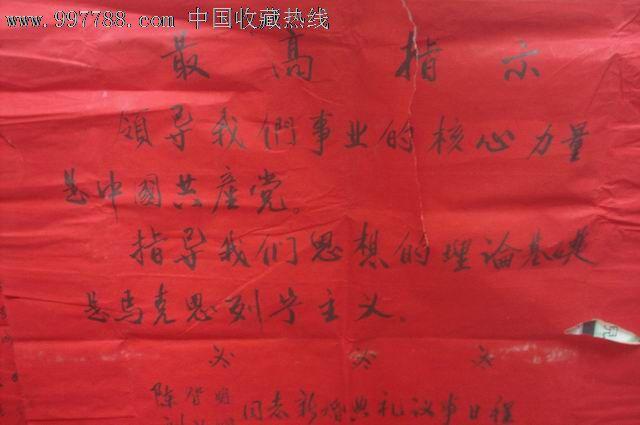 www.997788.com 中国收藏热线
最高指示
領导我們事业的核心力量
是中國共産党。
指导我们思想的理论基础
是马克思列宁主义.
陈智明
同志新婚典礼议事日程